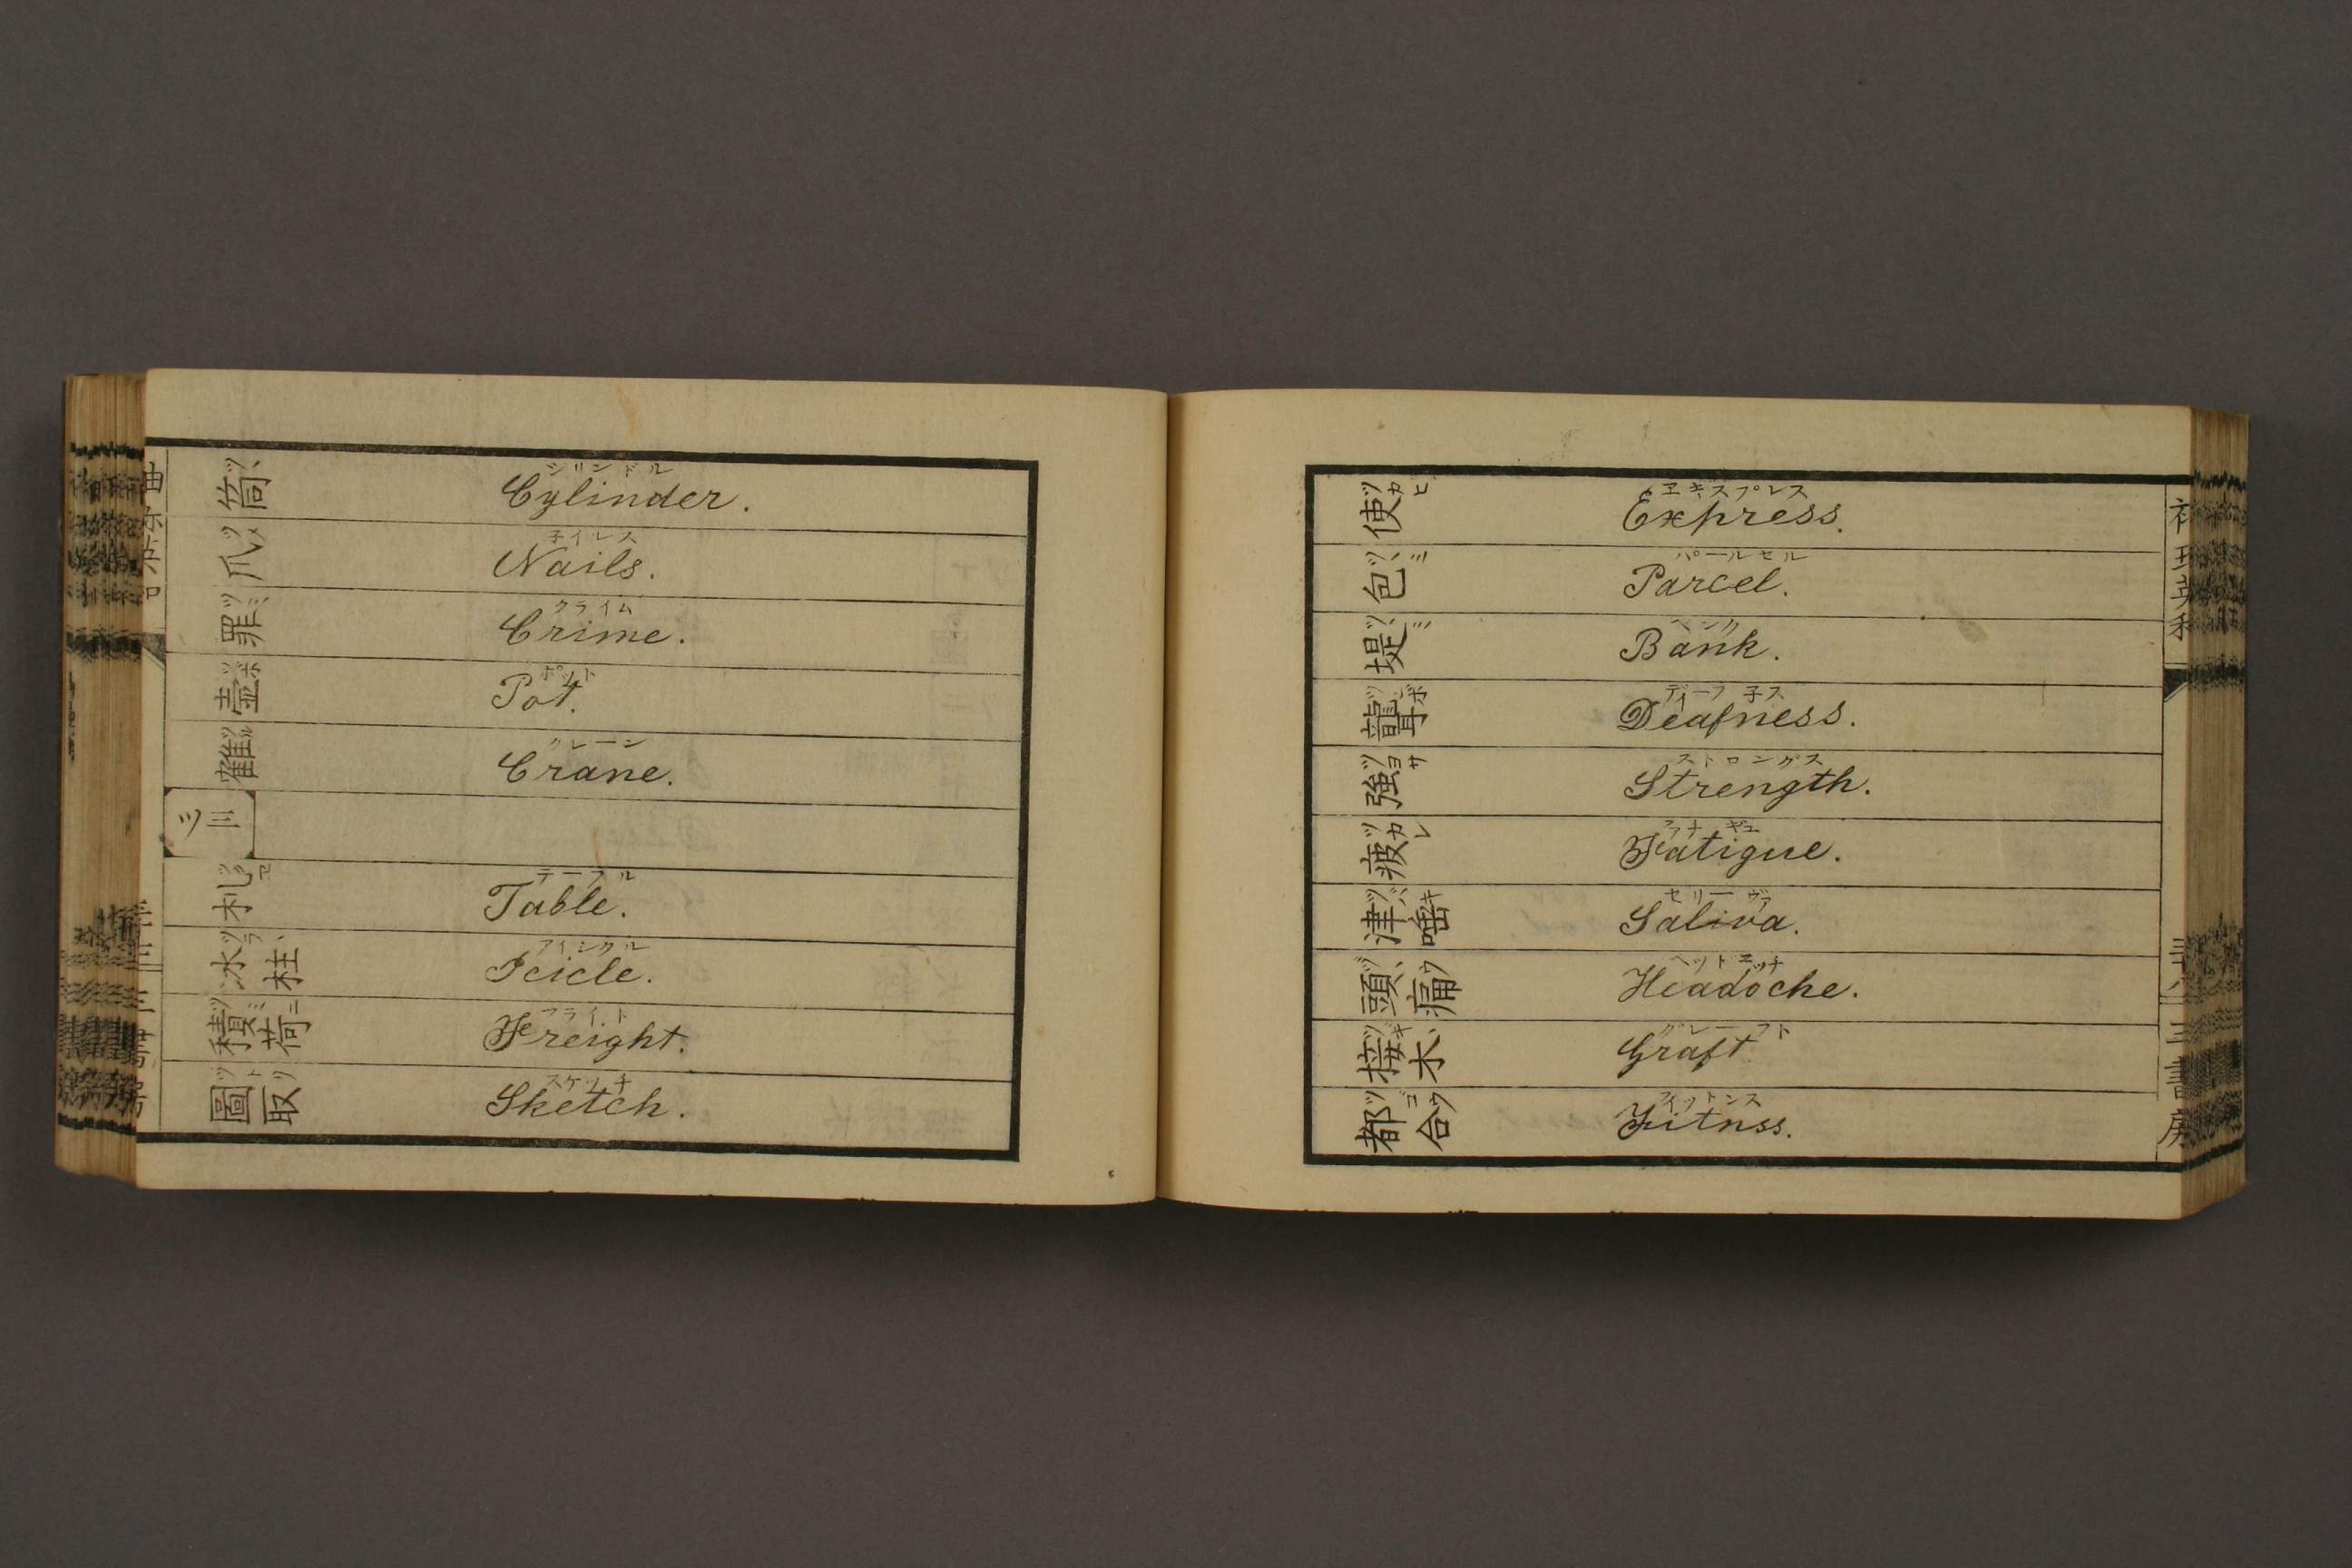 筒 ツヽ
シリンドル
Cylinder.
爪 ツメ
子イレス
Nails.
罪 ツミ
クライム
Crime.
壷 ツボ
ポット
Pot.
雚 ツル
クレーン
Crane.
三ツ
札
テーブル
Table.
氷柱 ツラヽ
アイシクル
Icicle.
積荷 ツミニ
フライト
Freight.
圖取 ツトリ
スケッチ
Sketch.
使 ツカヒ
エキスプレス
Express.
包 ツヽミ
パールセル
Parcel.
堤 ツヽミ
ベンク
Bank.
聾 ツンボ
ディーフ子ス
Deafness.
強 ツヨサ
ストロングス
Strength.
疲 ツカレ
Fatigue.
津唾 ツバキ
セリーヴァ
Saliva.
頭痛 ツヽウ
ヘットエッチ
Headoche.
接木 ツギキ
グレーフト
Graft
都合 ツゴウ
フィットンス
Fitnss.
三書房